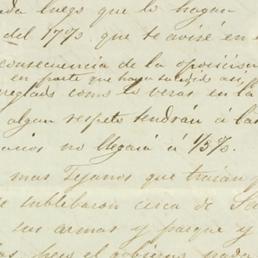 da luego que lo hagan
del 17%, que te avisé en
consecuencia de la oposicion
en parte que haya tenido así
reglado como lo veras en la
algun respeto tendran á las
no llegará á 1/5%.
mas Tejanos que traian
se sublebaron cerca de Sa
sus armas y parque y